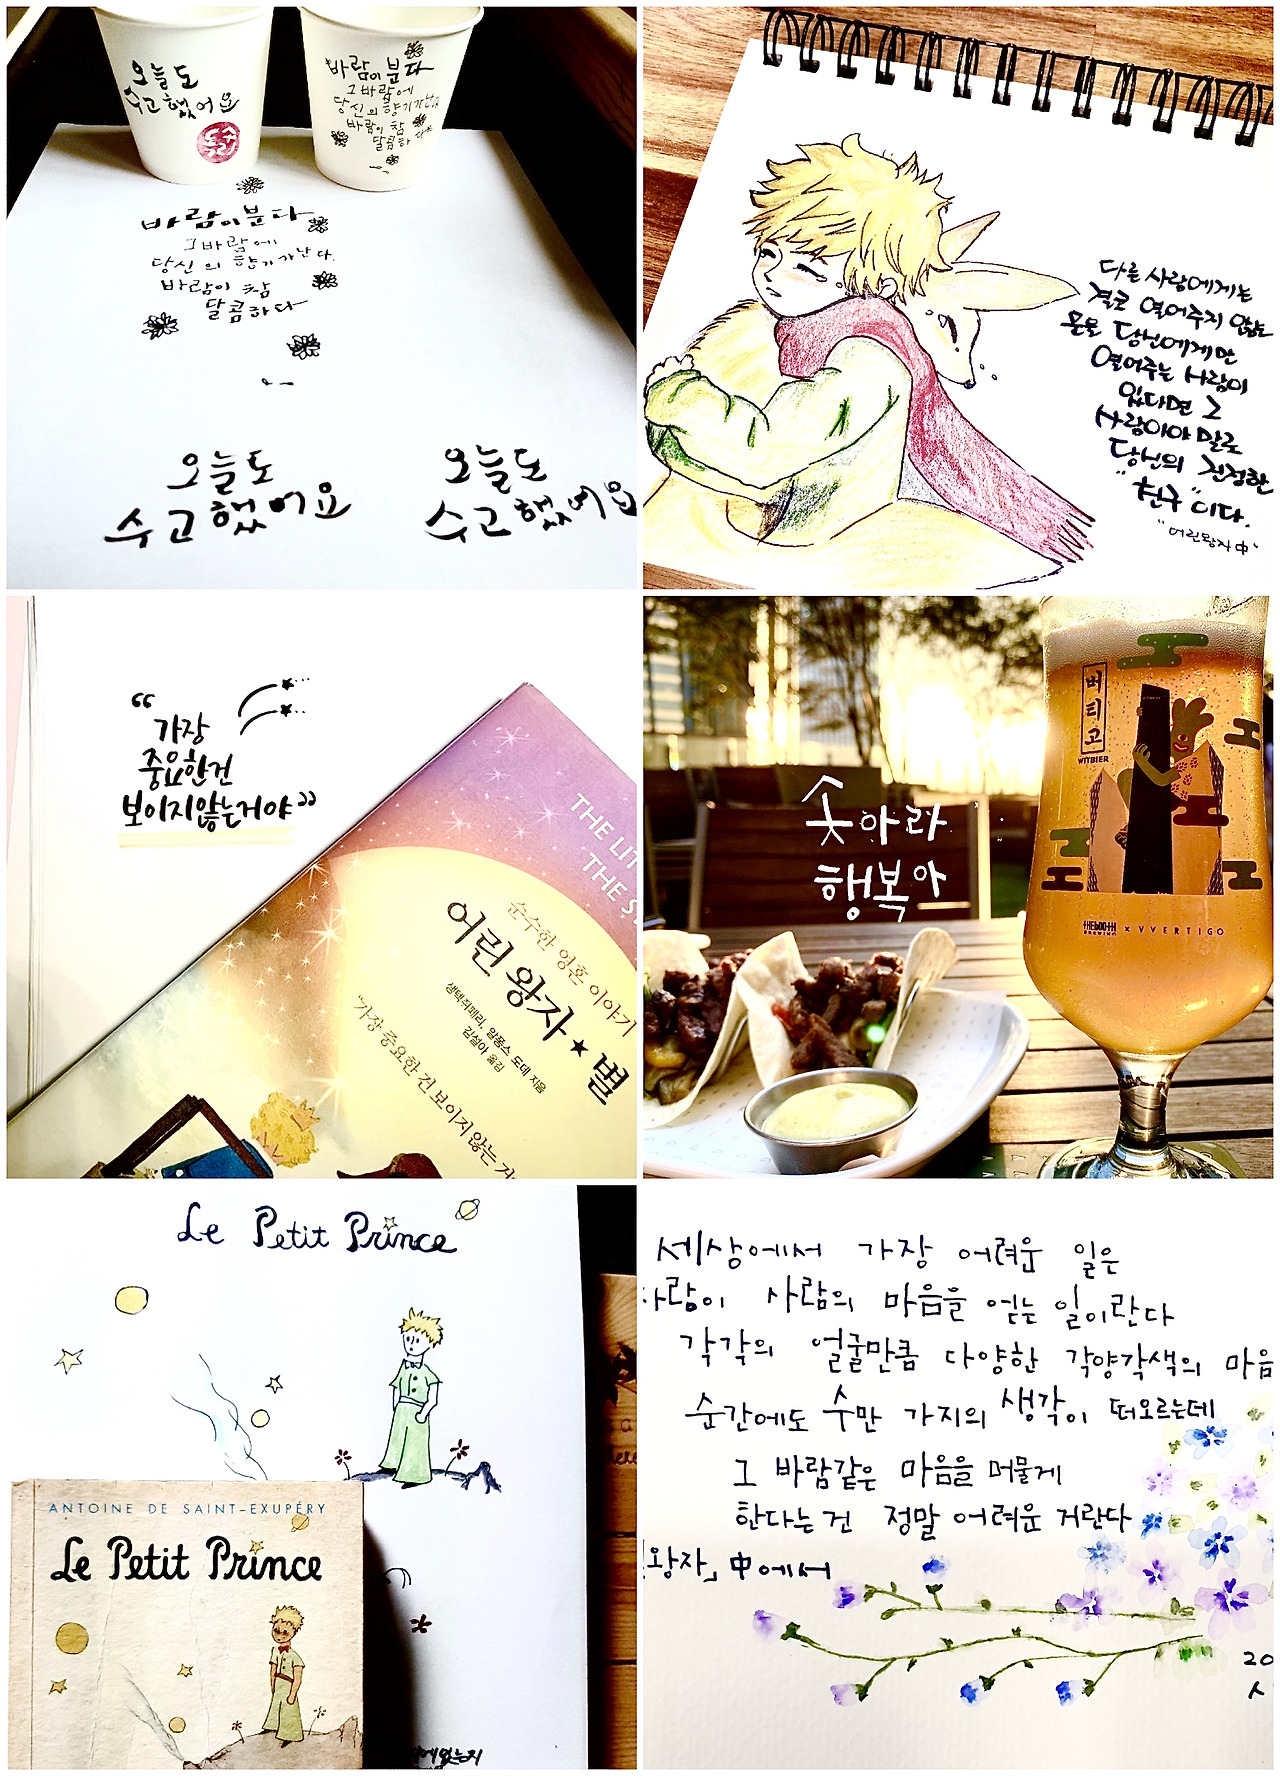 오늘도
수고했어요
바람이 분다
그 바람에
당신의 향기가 난다
바람이 참
달콤하다
바람이 분다
그 바람에
당신의 향기가 난다.
바람이 참
달콤하다
오늘도
수고했어요
오늘도
수고했어요
다른 사람에게는
결코 열어주지 않는
문을 당신에게만
열어주는 사람이
있다면 그
사람이야 말로
당신의 진정한
"친구"이다.
"어린왕자 中"
"가장
중요한건
보이지않는거야"
THE LIT
THE S
순수한 영혼 이야기
어린 왕자★별
생텍쥐페리, 알퐁스 도데 지음
김설아 옮김
"가장 중요한 건 보이지 않는 거
솟아라
행복아
버티고
WITBIER
THEBOOTH
BREWING
X VVERTIGO
Le Petit Prince
ANTOINE DE SAINT-EXUPÉRY
Le Petit Prince
에있는지
세상에서 가장 어려운 일은
사람이 사람의 마음을 얻는 일이란다
각각의 얼굴만큼 다양한 각양각색의 마음
순간에도 수만 가지의 생각이 떠오르는데
그 바람같은 마음을 머물게
한다는 건 정말 어려운 거란다
왕자」中에서
20